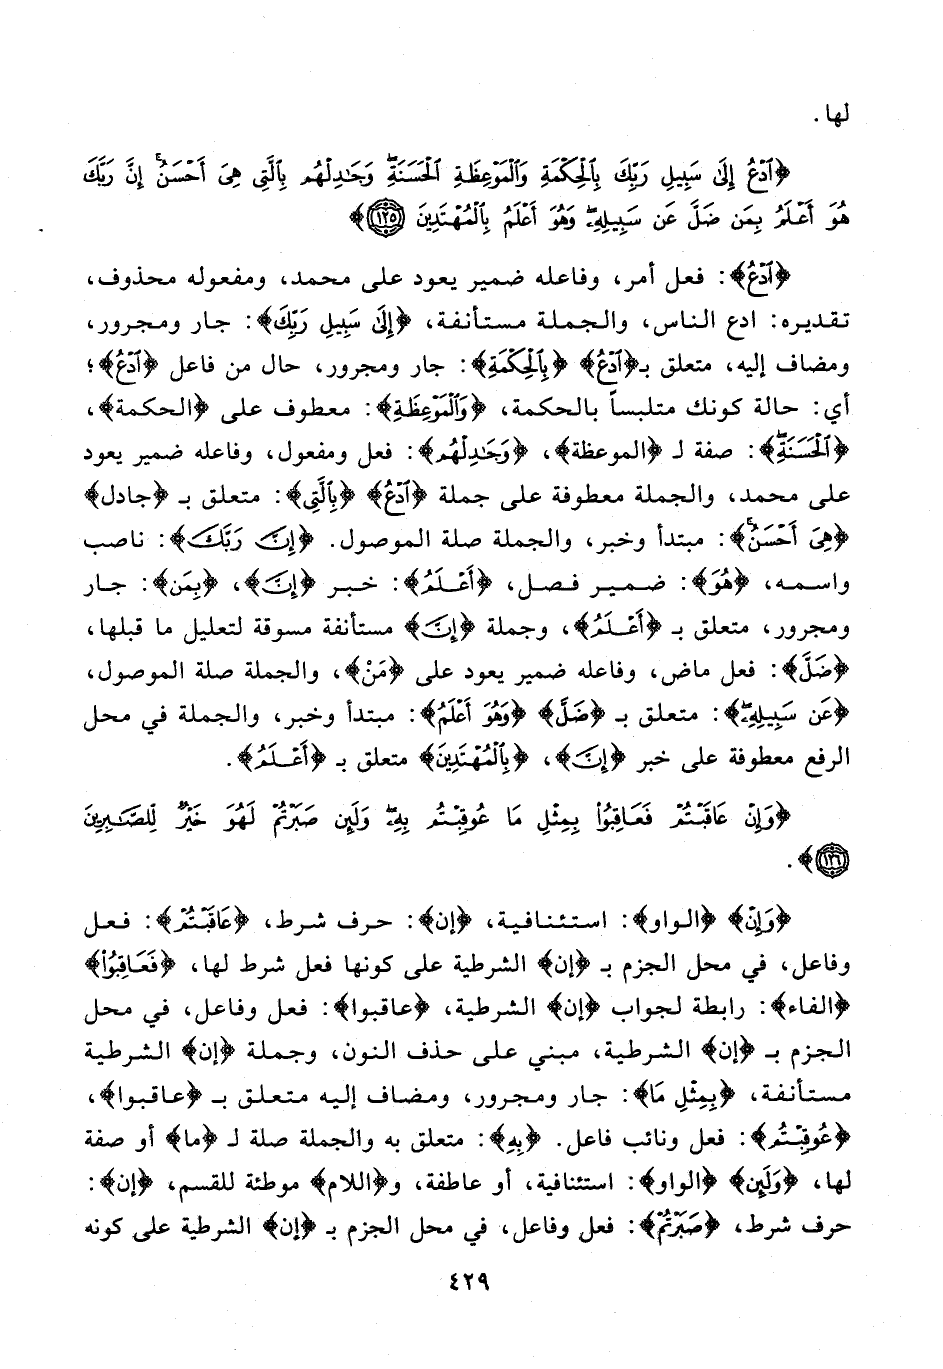 لها.
﴿ٱدۡعُ إِلَىٰ سَبِيلِ رَبِّكَ بِٱلۡحِكۡمَةِ وَٱلۡمَوۡعِظَةِ ٱلۡحَسَنَةِۖ وَجَٰدِلۡهُم بِٱلَّتِي هِيَ أَحۡسَنُۚ إِنَّ رَبَّكَ
هُوَ أَعۡلَمُ بِمَن ضَلَّ عَن سَبِيلِهِۦۖ وَهُوَ أَعۡلَمُ بِٱلۡمُهۡتَدِينَ ١٢٥﴾
﴿ٱدۡعُ﴾: فعل أمر، وفاعله ضمير يعود على محمد، ومفعوله محذوف،
تقديره: ادع الناس، والجملة مستأنفة، ﴿إِلَىٰ سَبِيلِ رَبِّكَ﴾: جار ومجرور،
ومضاف إليه، متعلق بـ﴿ٱدۡعُ﴾ ﴿بِٱلۡحِكۡمَةِ﴾: جار ومجرور، حال من فاعل ﴿ٱدۡعُ﴾؛
أي: حالة كونك متلبساً بالحكمة، ﴿وَٱلۡمَوۡعِظَةِ﴾: معطوف على ﴿الحكمة﴾،
﴿ٱلۡحَسَنَةِۖ﴾: صفة لـ ﴿الموعظة﴾، ﴿وَجَٰدِلۡهُم﴾: فعل ومفعول، وفاعله ضمير يعود
على محمد، والجملة معطوفة على جملة ﴿ٱدۡعُ﴾ ﴿بِٱلَّتِي﴾: متعلق بـ ﴿جادل﴾
﴿هِيَ أَحۡسَنُۚ﴾: مبتدأ وخبر، والجملة صلة الموصول. ﴿إِنَّ رَبَّكَ﴾: ناصب
واسمه، ﴿هُوَ﴾: ضمير فصل، ﴿أَعۡلَمُ﴾: خبر ﴿إِنَّ﴾، ﴿بِمَن﴾: جار
ومجرور، متعلق بـ ﴿أَعۡلَمُ﴾، وجملة ﴿إِنَّ﴾ مستأنفة مسوقة لتعليل ما قبلها،
﴿ضَلَّ﴾: فعل ماض، وفاعله ضمير يعود على ﴿مَنْ﴾، والجملة صلة الموصول،
﴿عَن سَبِيلِهِۦۖ﴾: متعلق بـ ﴿ضَلَّ﴾ ﴿وَهُوَ أَعۡلَمُ﴾: مبتدأ وخبر، والجملة في محل
الرفع معطوفة على خبر ﴿إِنَّ﴾، ﴿بِٱلۡمُهۡتَدِينَ﴾ متعلق بـ ﴿أَعۡلَمُ﴾.
﴿وَإِنۡ عَاقَبۡتُمۡ فَعَاقِبُواْ بِمِثۡلِ مَا عُوقِبۡتُم بِهِۦۖ وَلَئِن صَبَرۡتُمۡ لَهُوَ خَيۡرٞ لِّلصَّٰبِرِينَ
١٢٦﴾.
﴿وَإِنۡ﴾ ﴿الواو﴾: استئنافية، ﴿إن﴾: حرف شرط، ﴿عَاقَبۡتُمۡ﴾: فعل
وفاعل، في محل الجزم بـ ﴿إن﴾ الشرطية على كونها فعل شرط لها، ﴿فَعَاقِبُواْ﴾
﴿الفاء﴾: رابطة لجواب ﴿إن﴾ الشرطية، ﴿عاقبوا﴾: فعل وفاعل، في محل
الجزم بـ ﴿إن﴾ الشرطية، مبني على حذف النون، وجملة ﴿إن﴾ الشرطية
مستأنفة، ﴿بِمِثۡلِ مَا﴾: جار ومجرور، ومضاف إليه متعلق بـ ﴿عاقبوا﴾،
﴿عُوقِبۡتُم﴾: فعل ونائب فاعل. ﴿بِهِ﴾: متعلق به والجملة صلة لـ ﴿ما﴾ أو صفة
لها، ﴿وَلَئِن﴾ ﴿الواو﴾: استئنافية، أو عاطفة، و﴿اللام﴾ موطئة للقسم، ﴿إن﴾:
حرف شرط، ﴿صَبَرۡتُمۡ﴾: فعل وفاعل، في محل الجزم بـ ﴿إن﴾ الشرطية على كونه
٤٢٩